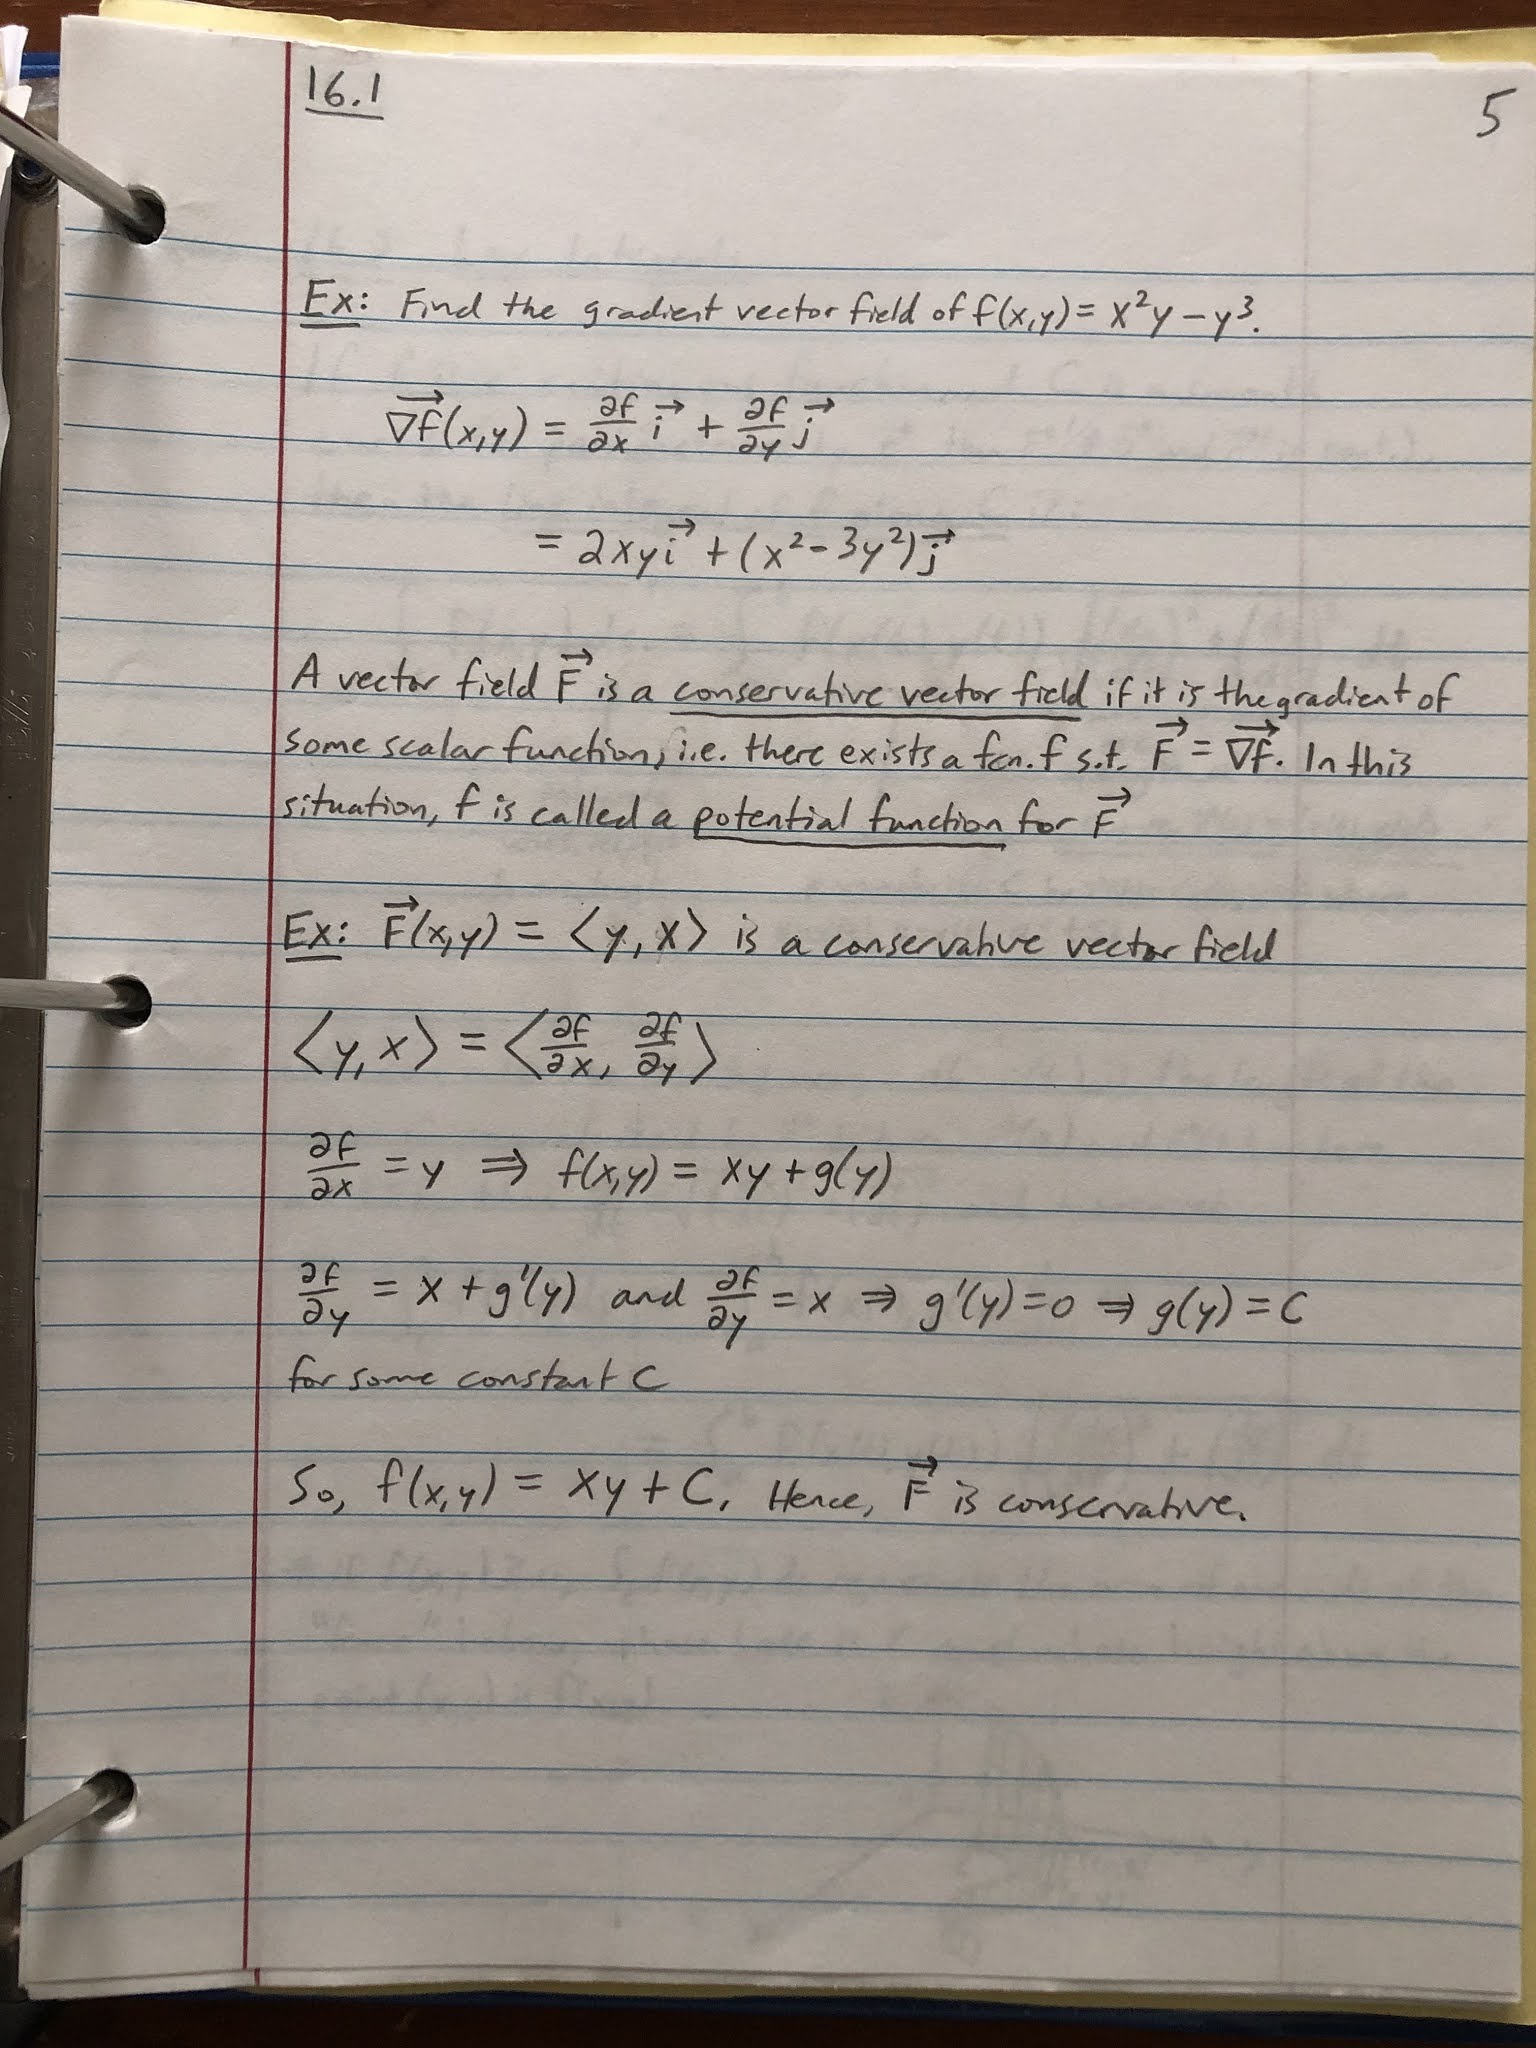 16.1
5
Ex: Find the gradient vector field of f(x,y) = x²y - y³.
∇f⃗(x,y) = ∂f/∂x i⃗ + ∂f/∂y j⃗
= 2xy i⃗ + (x² - 3y²) j⃗
A vector field F⃗ is a conservative vector field if it is the gradient of
some scalar function, i.e. there exists a fcn. f s.t. F⃗ = ∇f⃗. In this
situation, f is called a potential function for F⃗
Ex: F⃗(x,y) = ⟨y, x⟩ is a conservative vector field
⟨y, x⟩ = ⟨∂f/∂x, ∂f/∂y⟩
∂f/∂x = y ⇒ f(x,y) = xy + g(y)
∂f/∂y = x + g'(y) and ∂f/∂y = x ⇒ g'(y) = 0 ⇒ g(y) = C
for some constant C
So, f(x,y) = xy + C. Hence, F⃗ is conservative.